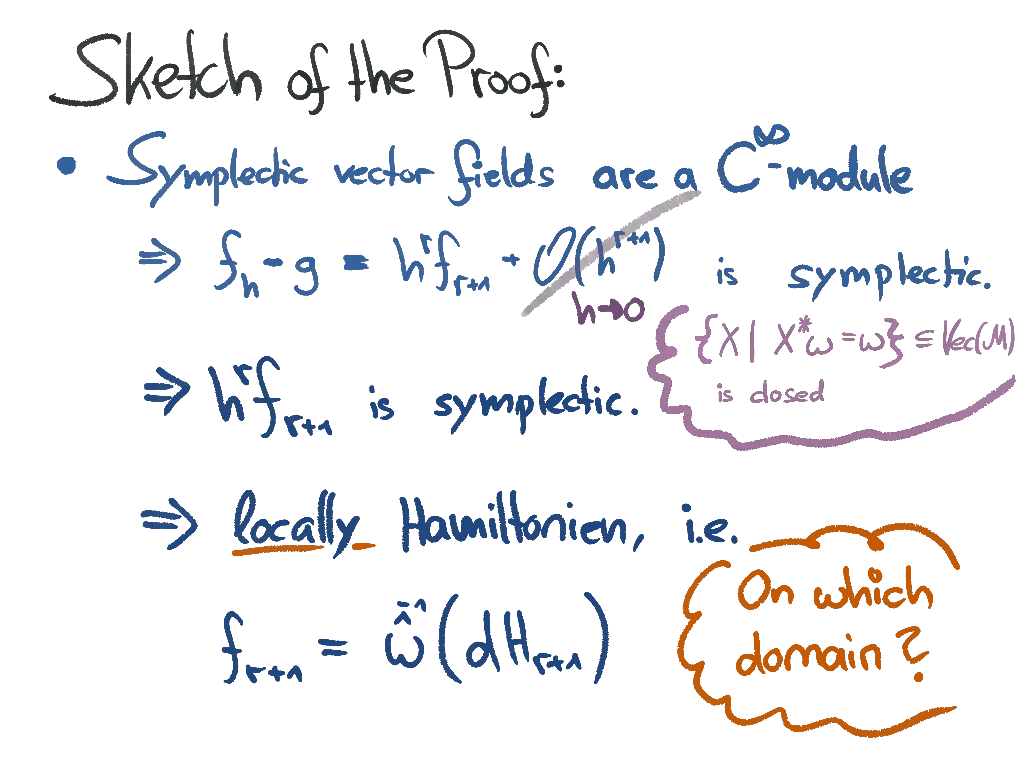 Sketch of the Proof:
• Symplectic vector fields are a C^∞-module
⇒ f_h - g = h^r f_{r+1} + O(h^{r+1}) is symplectic.
h→0
{X | X*ω = ω} ⊆ Vec(M)
is closed
⇒ h^r f_{r+1} is symplectic.
⇒ locally Hamiltonien, i.e.
f_{r+1} = ω̂^{-1}(dH_{r+1})
On which
domain?